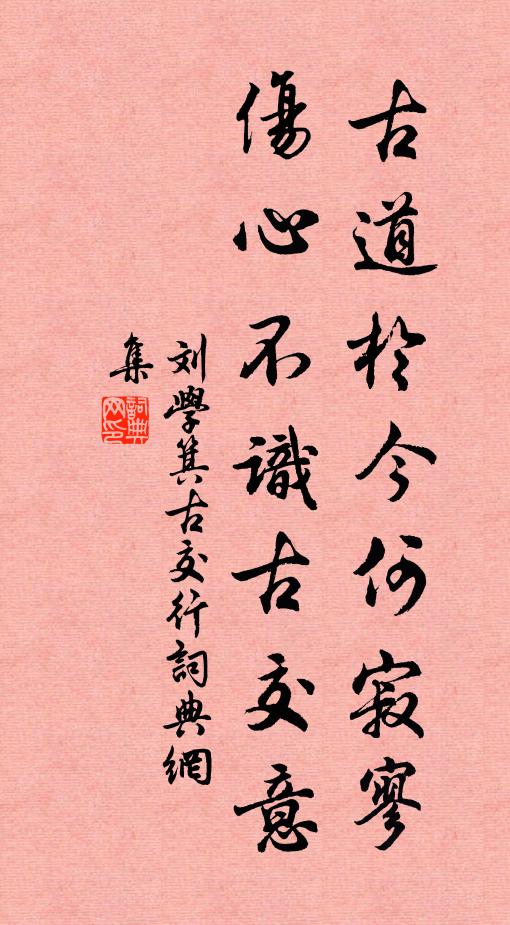 古道於今何寂寥
傷心不識古交意
刘學箕古交行詞典網
集
詞典
网印